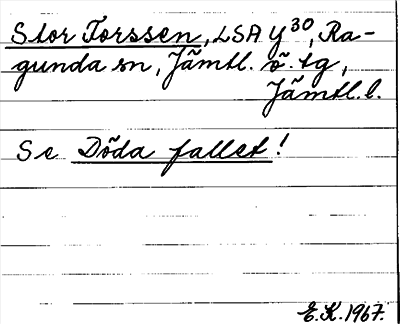 Stor Forssen, LSA Y30, Ra-
gunda sn, Jämtl. ö. tg,
Jämtl. l.
Se Döda fallet!
E.K. 1967.